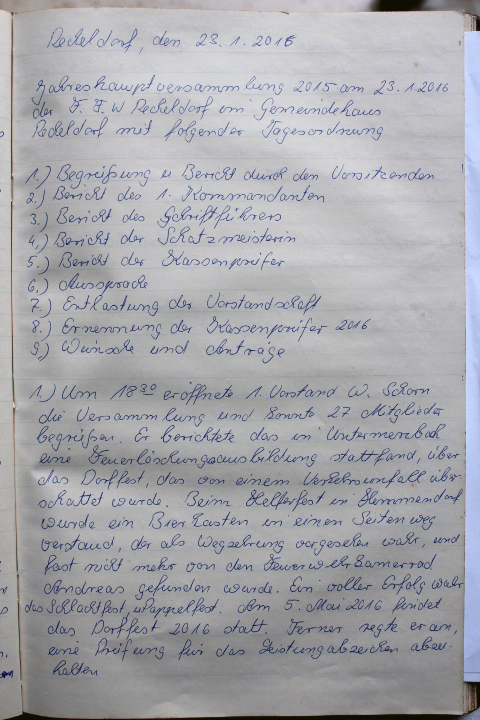 Reckeldorf, den 23.1.2016
Jahreshauptversammlung 2015 am 23.1.2016
der F.F.W Reckeldorf im Gemeindehaus
Reckeldorf mit folgender Tagesordnung
1.) Begrüßung u Bericht durch den Vorsitzenden
2.) Bericht des 1. Kommandanten
3.) Bericht des Schriftführers
4.) Bericht der Schatzmeisterin
5.) Bericht der Kassenprüfer
6.) Aussprache
7.) Entlastung der Vorstandschaft
8.) Ernennung der Kassenprüfer 2016
9.) Wünsche und Anträge
1.) Um 18 30 eröffnete 1. Vorstand W. Schorn
die Versammlung und konnte 27 Mitglieder
begrüßen. Er berichtete das in Untermerzbach
eine Feuerlöschungsausbildung stattfand, über
das Dorffest, das von einem Verkehrsunfall über-
schattet wurde. Beim Helferfest in Hemmendorf
wurde ein Bierkasten in einen Seitenweg
verstand, der als Wegzehrung vorgesehen wahr, und
fast nicht mehr von den Feuerwehrkamerad
Andreas gefunden wurde. Ein voller Erfolg wahr
das Schlachtfest, u Pappelfest. Am 5. Mai 2016 findet
das Dorffest 2016 statt. Ferner regte er an,
eine Prüfung für das Leistungabzeichen abzu-
halten